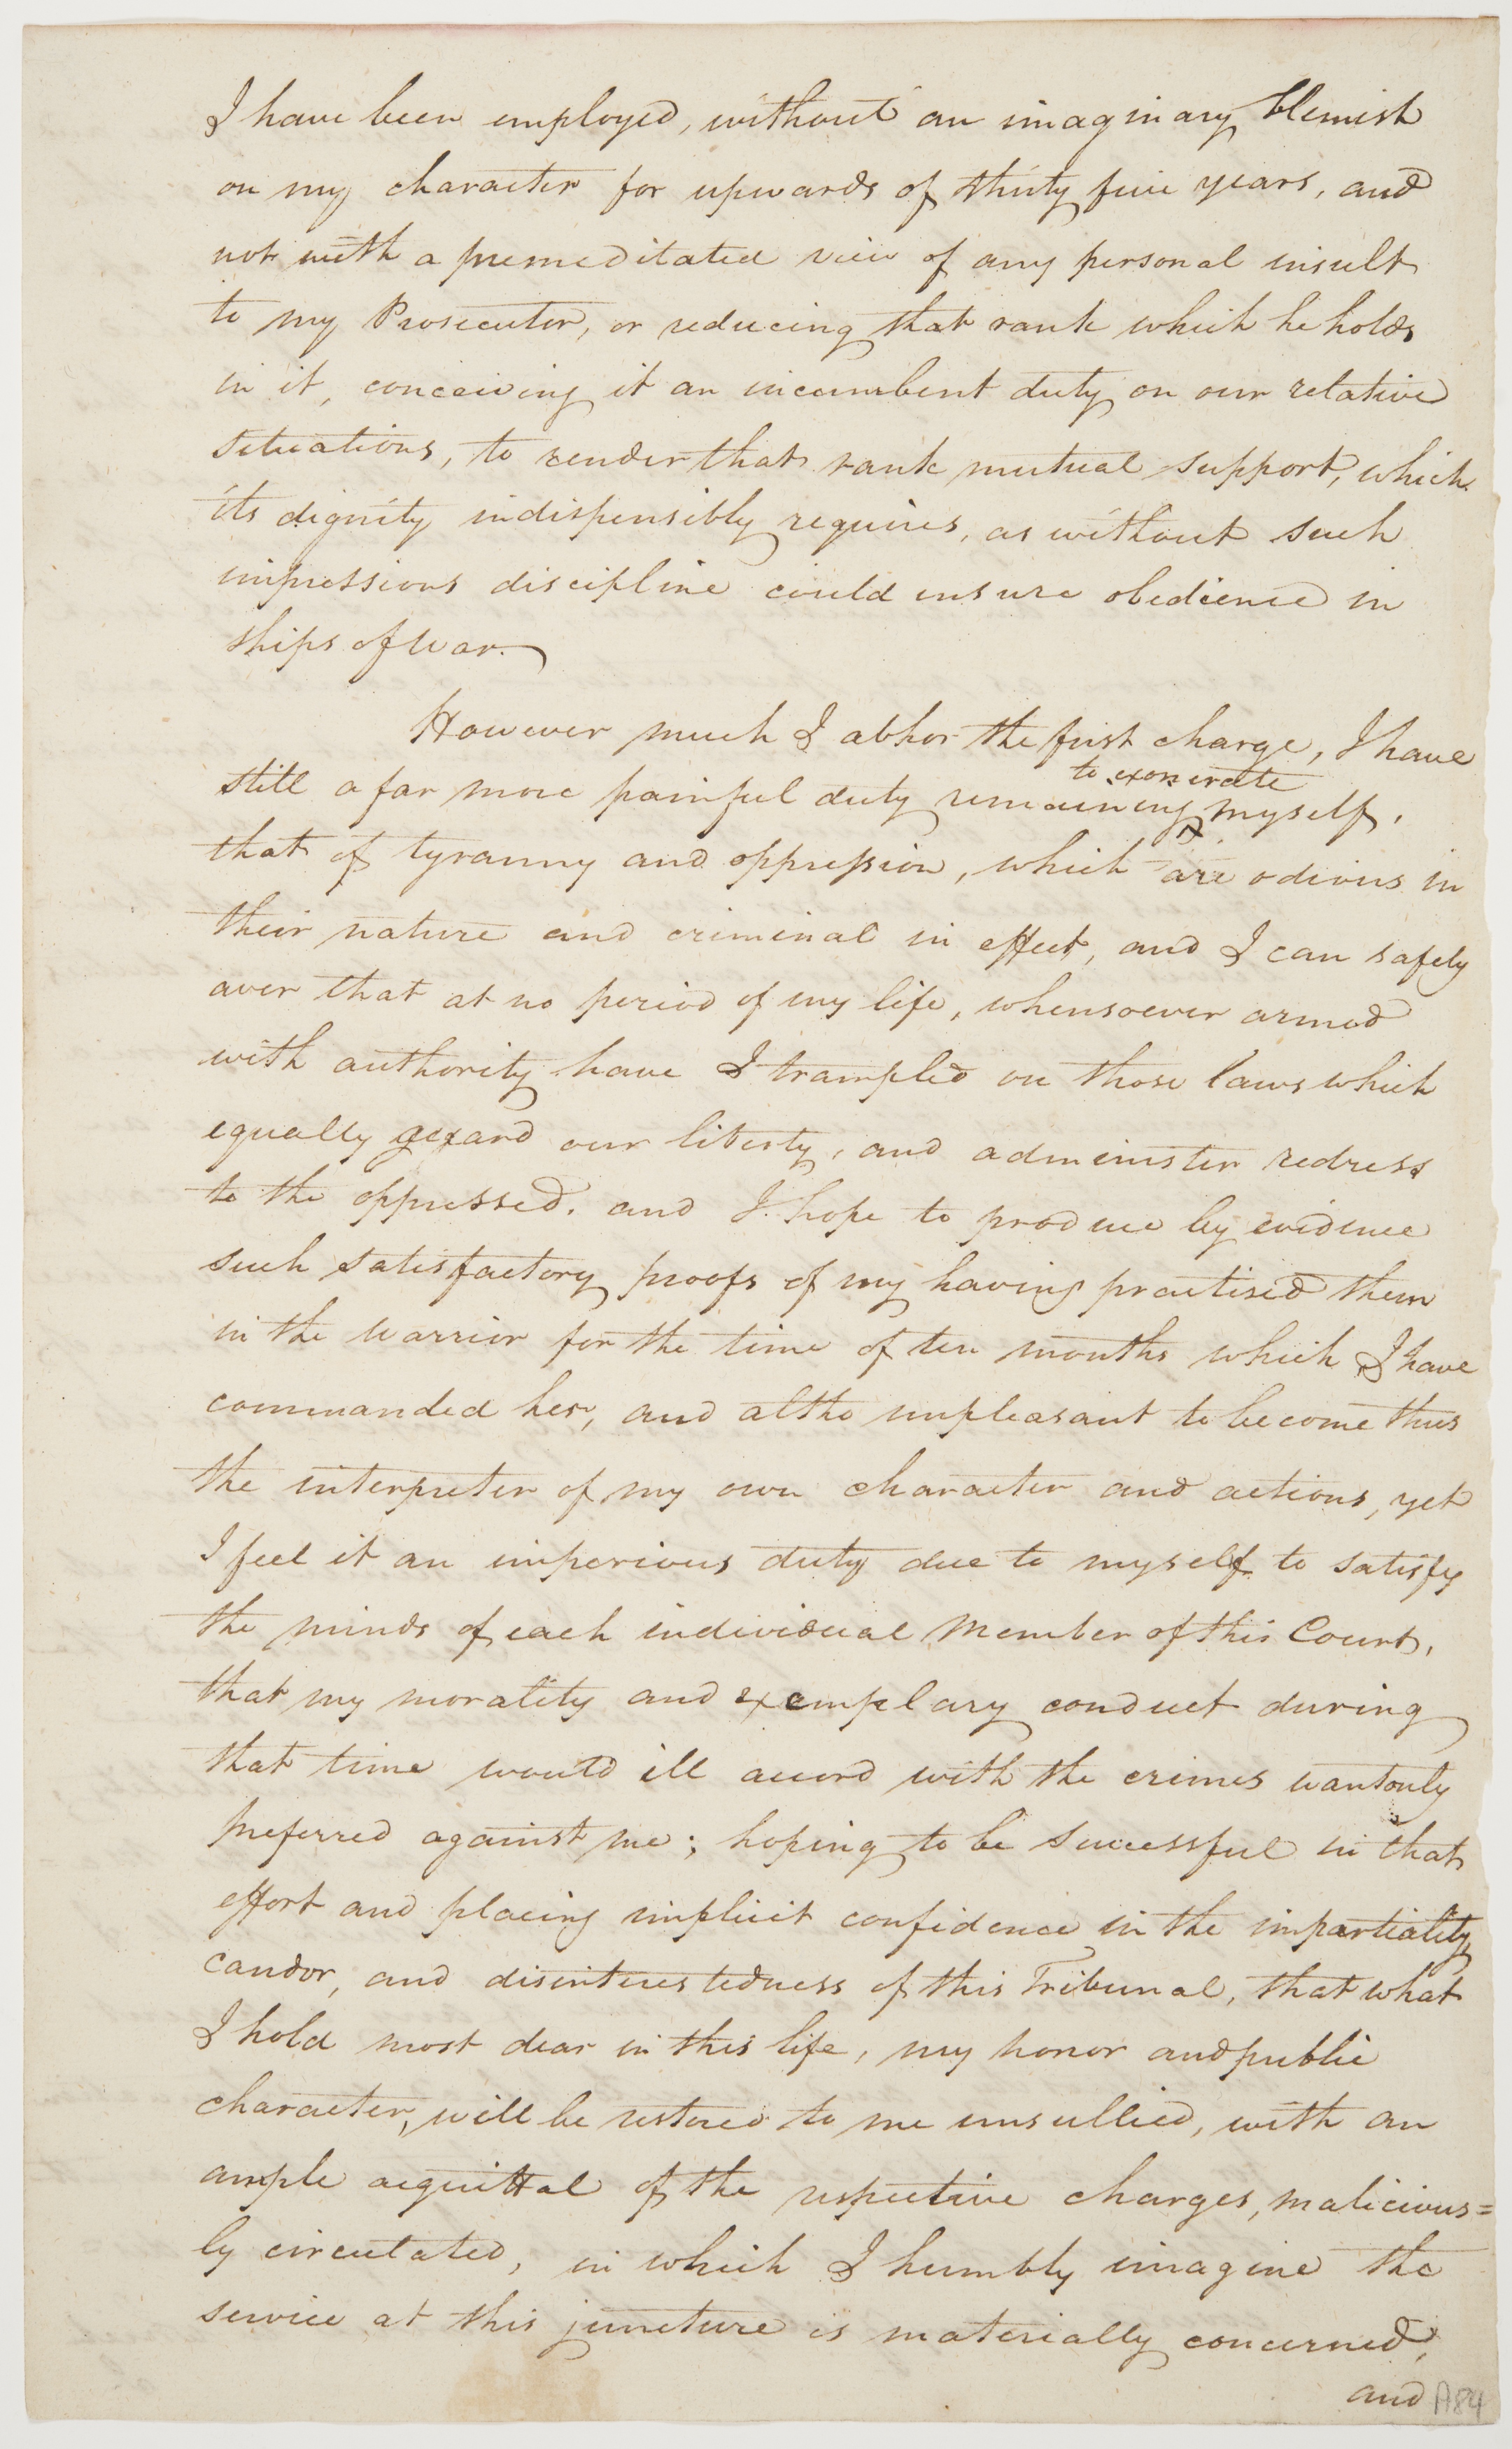 I have been employed, without an imaginary blemish
on my character for upwards of thirty five years, and
not with a premeditated view of any personal insult
to my Prosecutor, or reducing that rank which he holds
in it, conceiving it an incumbent duty on our relative
situations, to render that rank mutual support, which
its dignity indispensibly requires, as without such
impressions discipline could insure obedience in
ships of War.
However much I abhor the first charge, I have
to exonerate
still a far more painful duty remaining myself,
that of tyranny and oppression, which are odious in
their nature and criminal in effect, and I can safely
aver that at no period of my life, whensoever armed
with authority have I trampled on those laws which
equally guard our liberty, and administer redress
to the oppressed. and I hope to produce by evidence
such satisfactory proofs of my having practised them
in the Warrior for the time of ten months which I have
commanded her, and altho unpleasant to become thus
the interpreter of my own character and actions, yet
I feel it an imperious duty due to myself to satisfy
the minds of each individual Member of this Court,
that my morality and exemplary conduct during
that time would ill accord with the crimes wantonly
preferred against me; hoping to be successful in that
effort and placing implicit confidence in the impartiality,
candor, and disinterestedness of this Tribunal, that what
I hold most dear in this life, my honor and public
character, will be restored to me unsullied, with an
ample acquittal of the respective charges, malicious=
ly circulated, in which I humbly imagine the
service at this juncture is materially concerned,
and
A84